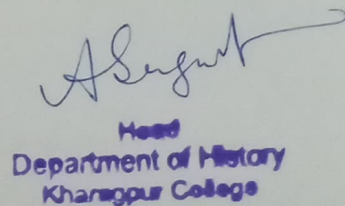 Head
Department of History
Kharagpur College